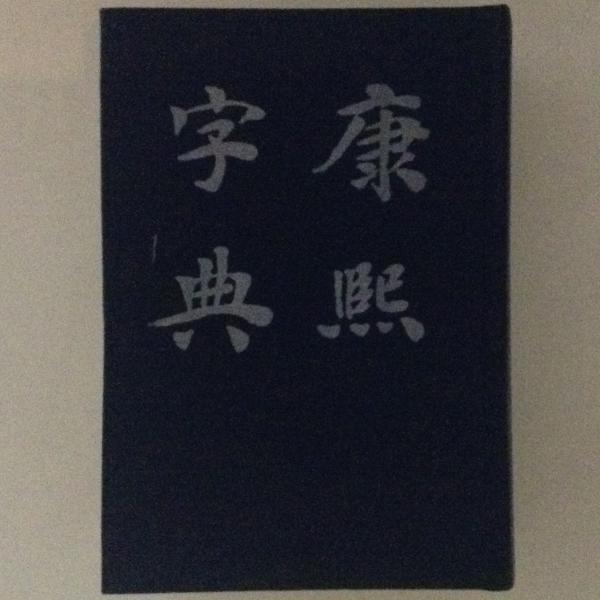 康熙
字典